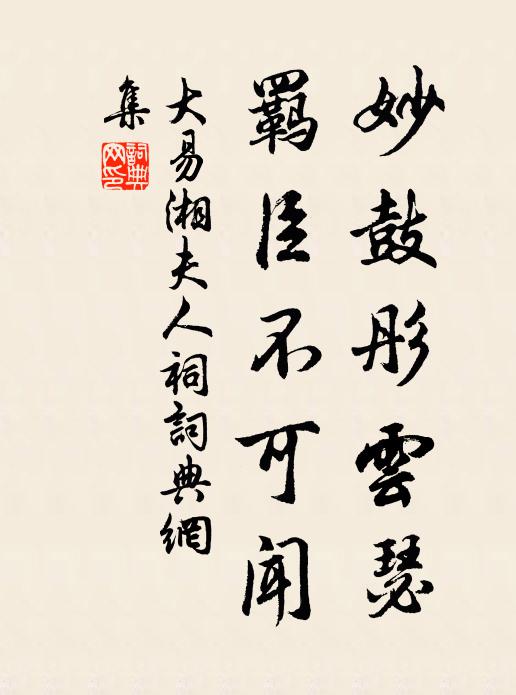 妙鼓彤雲瑟
羁臣不可聞
大易湘夫人祠詞典網
集
詞典
网印